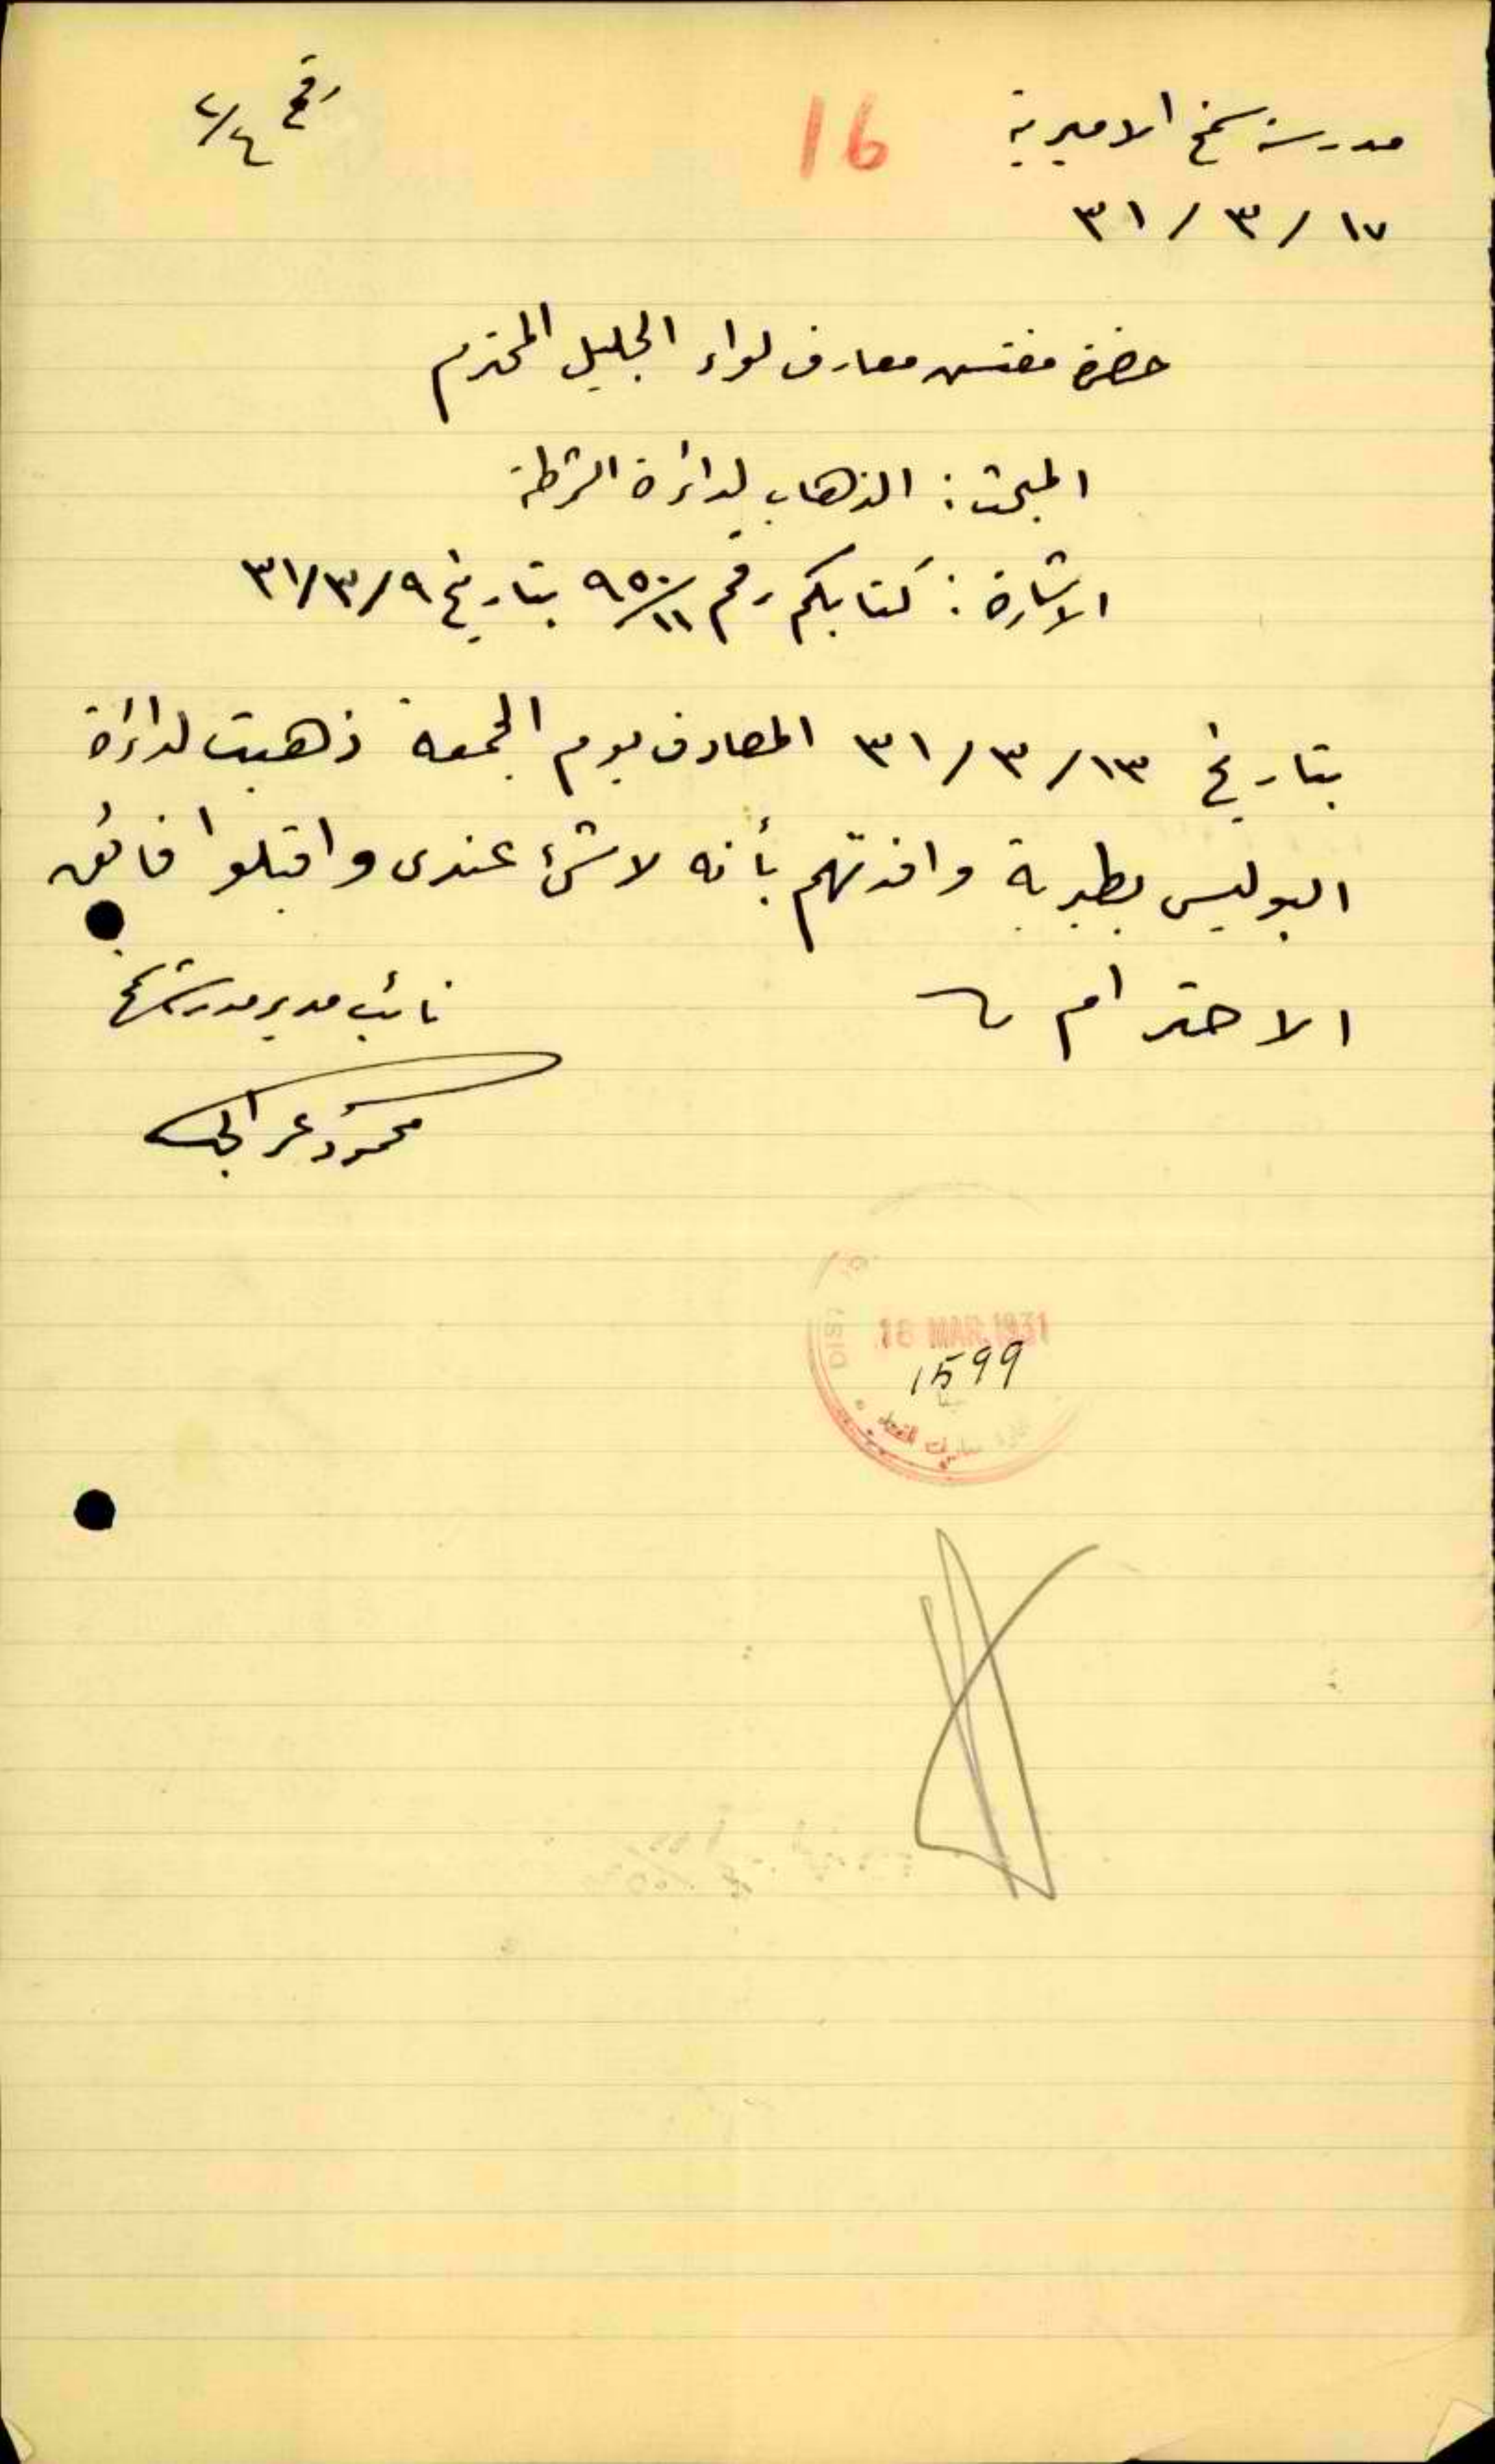 مدرسة سمخ الاميرية
16
رقم ٤/٢
١٧ / ٣ / ٣١
حضرة مفتش معارف لواء الجليل المحترم
المبحث : الذهاب لدائرة الشرطة
الاشارة : كتابكم رقم ١١/٩٥٠ بتاريخ ٩/٣/٣١
بتاريخ ١٣/٣/٣١ المصادف يوم الجمعة ذهبت لدائرة
البوليس بطبرية وافدتهم بأنه لا شئ عندى واقبلوا فائق
الاحترام
نائب مدير مدرسة سمخ
محمود
18 MAR. 1931
1599